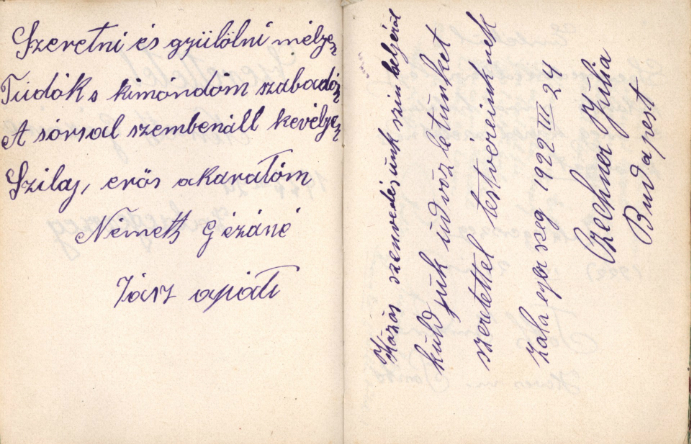 Szeretni és gyűlölni mélyen
Tudok s kimondom szabadon
A sorsal szembenáll kevélyen
Szilaj, erős akaratom
Németh Gézáné
Jász apáti
Közös szenvedésünk szinhelyéről
küldjük üdvözletünket
szeretettel testvéreinknek
Zalaegerszeg 1922 III 24
Czechner Júlia
Budapest